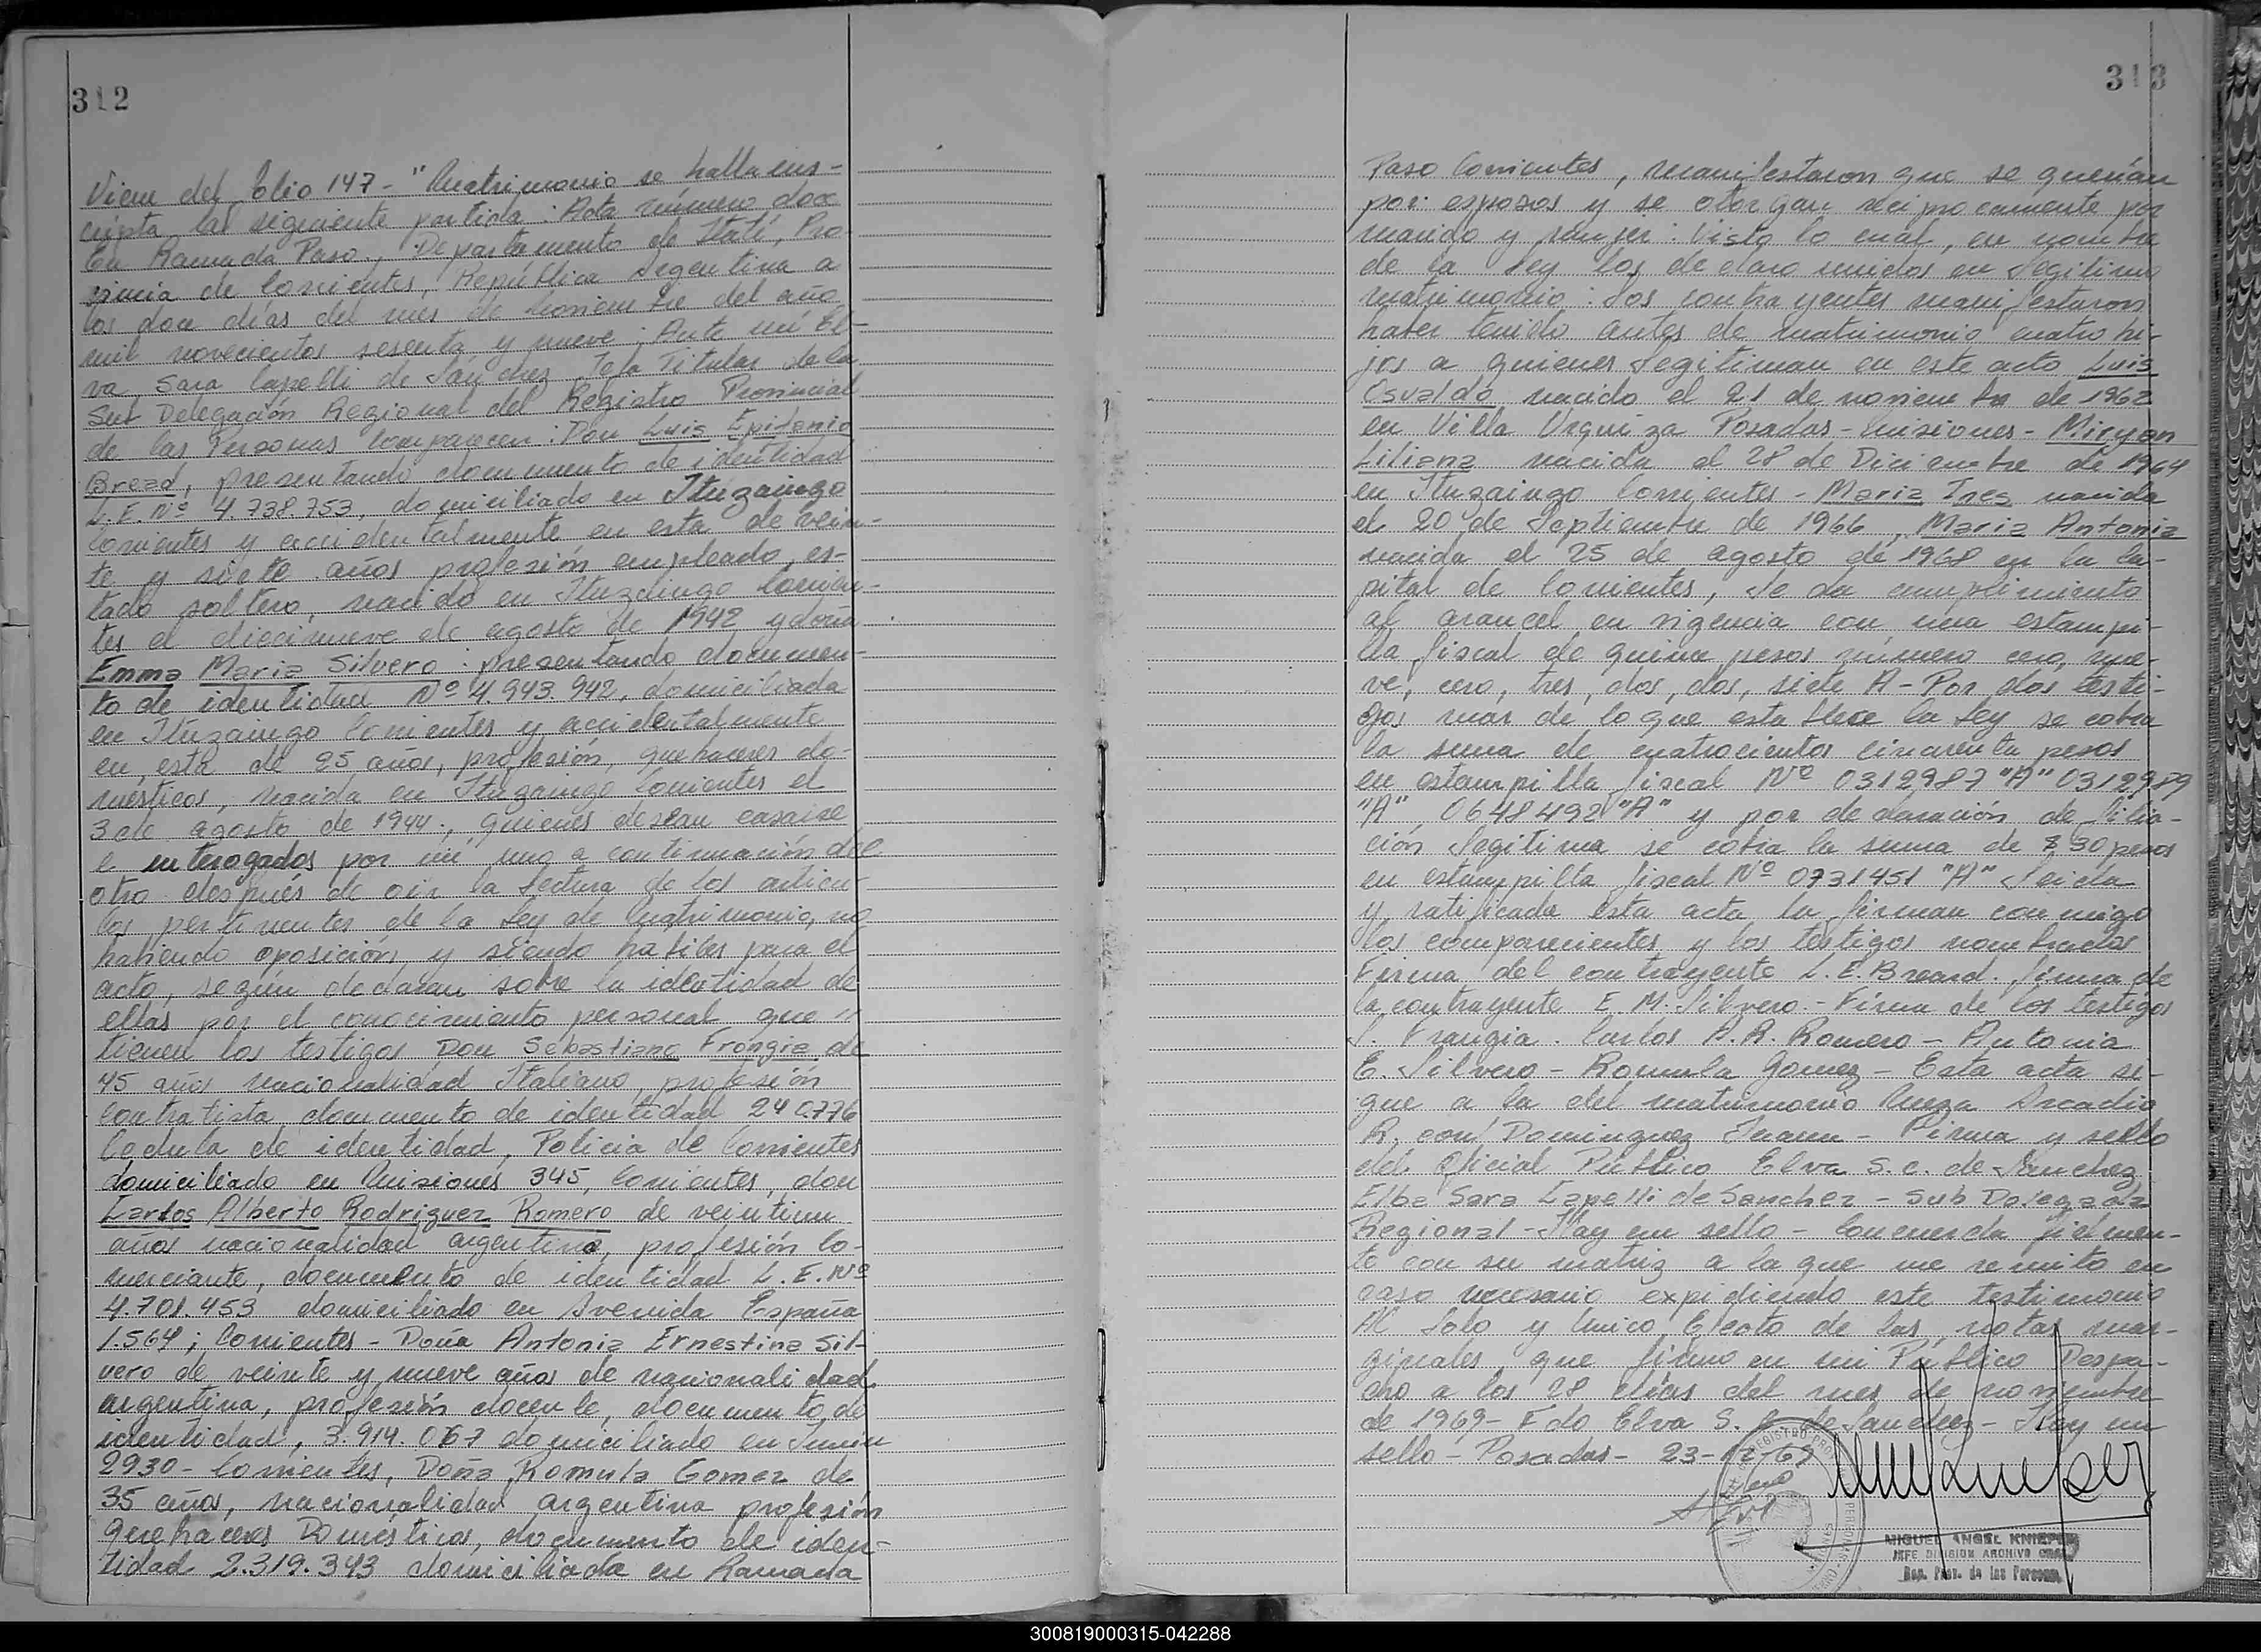 312
Viene del folio 147 - "Matrimonio se halla ins-
cripta la siguiente partida: Acta número doce
En Ramada Paso, Departamento de Itatí, Pro-
vincia de Corrientes, República Argentina a
los doce días del mes de Noviembre del año
mil novecientos sesenta y nueve: Ante mí El-
va Sara Capelli de Sánchez Jefa Titular de la
Sub Delegación Regional del Registro Provincial
de las Personas Comparecen: Don Luis Epifanio
Bread, presentando documento de identidad
L.E. Nº 4.738.753, domiciliado en Ituzaingo
Corrientes y accidentalmente en esta de vein-
te y siete años profesión empleado, es-
tado soltero, nacido en Ituzaingo Corrien-
tes el diecinueve de agosto de 1942 y doña
Emma Maria Silvero: presentando documen-
to de identidad Nº 4.943.942, domiciliada
en Ituzaingo Corrientes y accidentalmente
en esta de 25 años, profesión, quehaceres do-
mésticos, nacida en Ituzaingo Corrientes el
3 de agosto de 1944; quienes desean casarse
e interogados por mí uno a continuación del
otro después de oir la lectura de los articu-
los pertinentes de la Ley de Matrimonio, no
habiendo oposición y siendo habiles para el
acto, según declaran sobre la identidad de
ellas por el conocimiento personal que "
tienen los testigos Don Sebastiano Frangia de
45 años nacionalidad Italiano, profesión
Contratista documento de identidad 240.776
Cedula de identidad, Policia de Corrientes
domiciliado en Misiones 345, Corrientes, don
Carlos Alberto Rodriguez Romero de veintiun
años nacionalidad argentino, profesión Co-
merciante, documento de identidad L.E. Nº
4.701.453 domiciliado en Avenida España
1.564; Corrientes - Doña Antonia Ernestina Sil-
vero de veinte y nueve años de nacionalidad
argentina, profesión docente, documento de
identidad, 3.914.067 domiciliado en Junin
2930 - Corrientes, Doña Romula Gomez de
35 años, nacionalidad argentina profesión
Quehaceres Domésticos, documento de iden-
tidad 2.319.343 domiciliada en Ramada
313
Paso Corrientes, manifestaron que se querían
por esposos y se otorgan reciprocamente por
marido y mujer: Visto lo cual, en nombre
de la Ley los declaro unidos en Legitimo
matrimonio: Los contrayentes manifestaron
haber tenido antes de matrimonio cuatro hi-
jos a quienes Legitiman en este acto Luis
Osvaldo nacido el 21 de noviembre de 1962
en Villa Urquiza Posadas - Misiones - Miryan
Liliana nacida el 28 de Diciembre de 1964
en Ituzaingo Corrientes - Maria Ines nacida
el 20 de Septiembre de 1966, Maria Antonia
nacida el 25 de agosto de 1968 en la Ca-
pital de Corrientes, Se da cumplimiento
al arancel en vigencia con una estampi-
lla fiscal de quince pesos número cero, nue-
ve, cero, tres, dos, dos, siete A - Por dos testi-
gos más de lo que establece la Ley se cobra
la suma de cuatrocientos cincuenta pesos
en estampilla fiscal Nº 0312987 "A" 0312989
"A", 0648492 "A" y por declaración de filia-
ción Legitima se cobra la suma de $ 30 pesos
en estampilla fiscal Nº 0731451 "A" Leida
y ratificada esta acta la firman conmigo
los comparecientes y los testigos nombrados
Firma del contrayente L.E. Breard. firma de
la contrayente E. M. Silvero - Firma de los testigos
S. Frangia. Carlos A. R. Romero - Antonia
E. Silvero - Romula Gomez - Esta acta si-
gue a la del matrimonio Meza Arcadio
R. con Dominguez Juana - Firma y sello
del Oficial Público Elva S. C. de Sanchez
Elba Sara Capelli de Sanchez - Sub Delegada
Regional - Hay un sello - Concuerda fielmen-
te con su matriz a la que me remito en
caso necesario expidiendo este testimonio
Al Solo y Unico Efecto de las notas mar-
ginales que firmo en mi Público Despa-
cho a los 28 días del mes de noviembre
de 1969 - Fdo Elva S. C. de Sanchez - Hay un
sello - Posadas - 23-12-69
MIGUEL ANGEL KNIEPER
JEFE DIVISION ARCHIVO GRAL
Reg. Prov. de las Personas
300819000315-042288